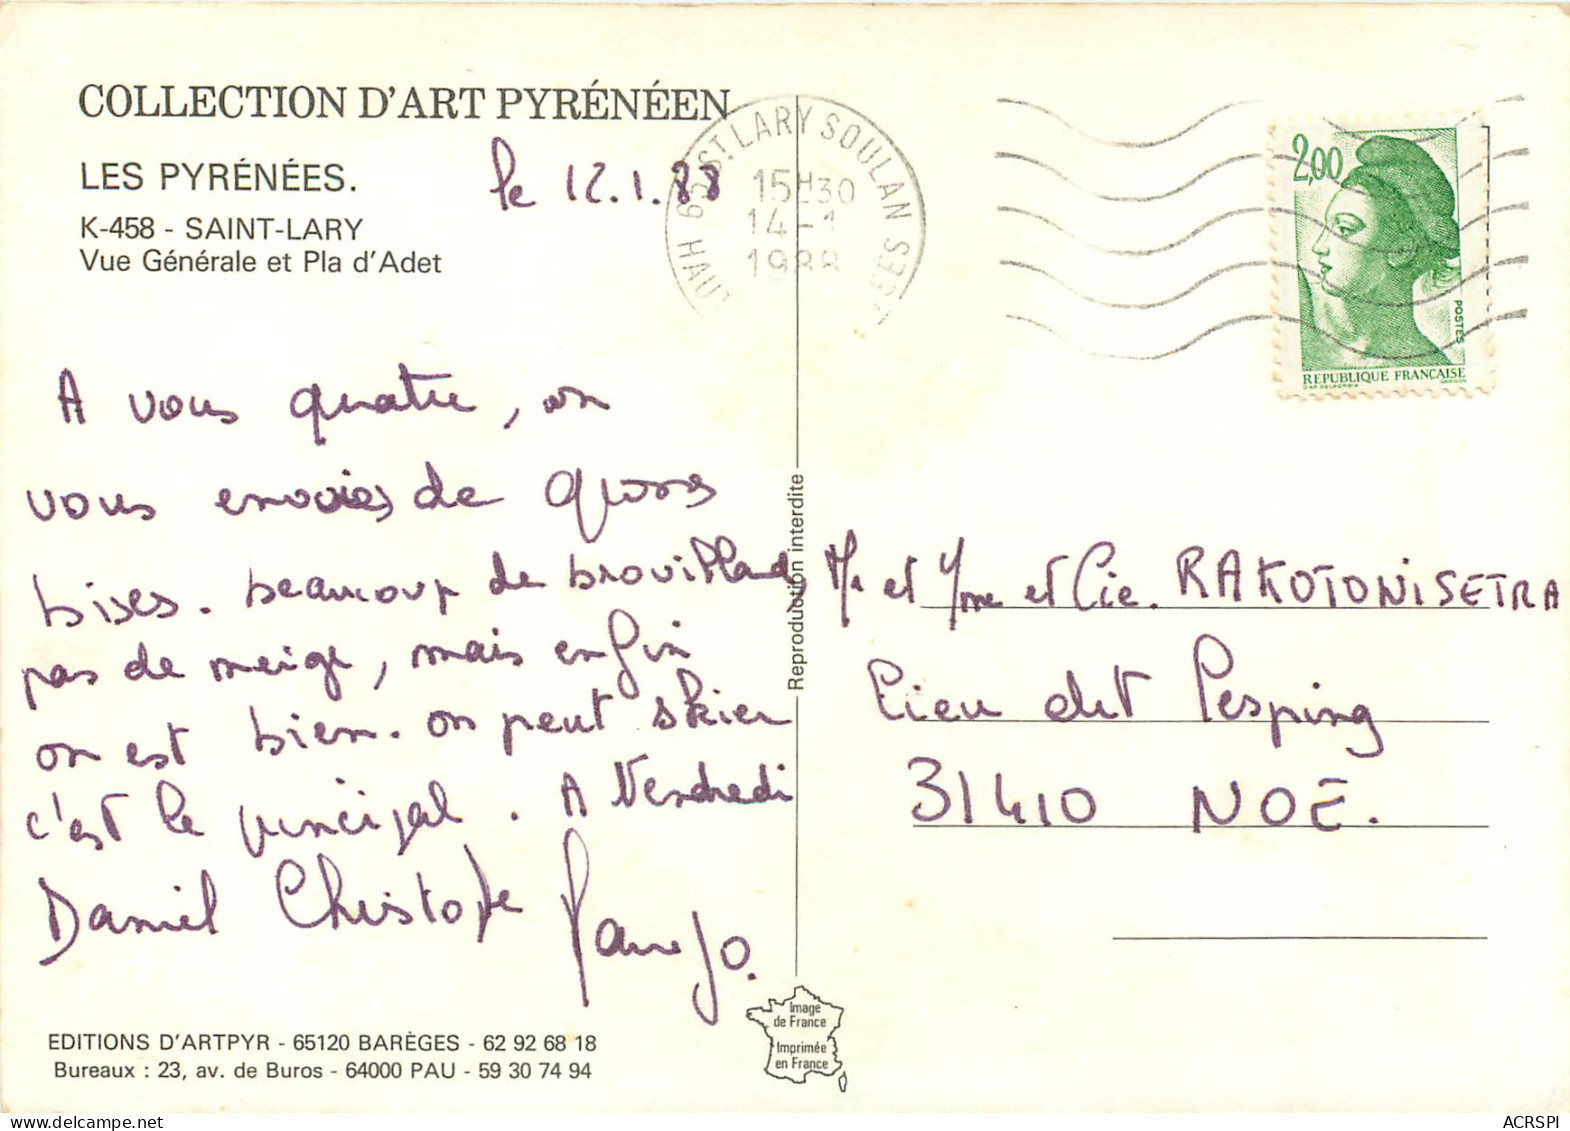 COLLECTION D'ART PYRÉNÉEN
LES PYRÉNÉES.
K-458 - SAINT-LARY
Vue Générale et Pla d'Adet
le 12.1.88
65 ST. LARY SOULAN
HAUT
15H30
14-1
1988
2,00
POSTES
REPUBLIQUE FRANÇAISE
A vous quatre, on
vous envoies de grosses
bises. beaucoup de brouillard
pas de neige, mais enfin
on est bien. on peut skier
c'est le principal. A Vendredi
Daniel Christophe
Jo.
Reproduction interdite
Mr et Mme et Cie. RAKOTONISETRA
Lieu dit Lesping
31410 NOE.
EDITIONS D'ARTPYR - 65120 BARÈGES - 62 92 68 18
Bureaux : 23, av. de Buros - 64000 PAU - 59 30 74 94
Image
de France
Imprimée
en France
ACRSPI